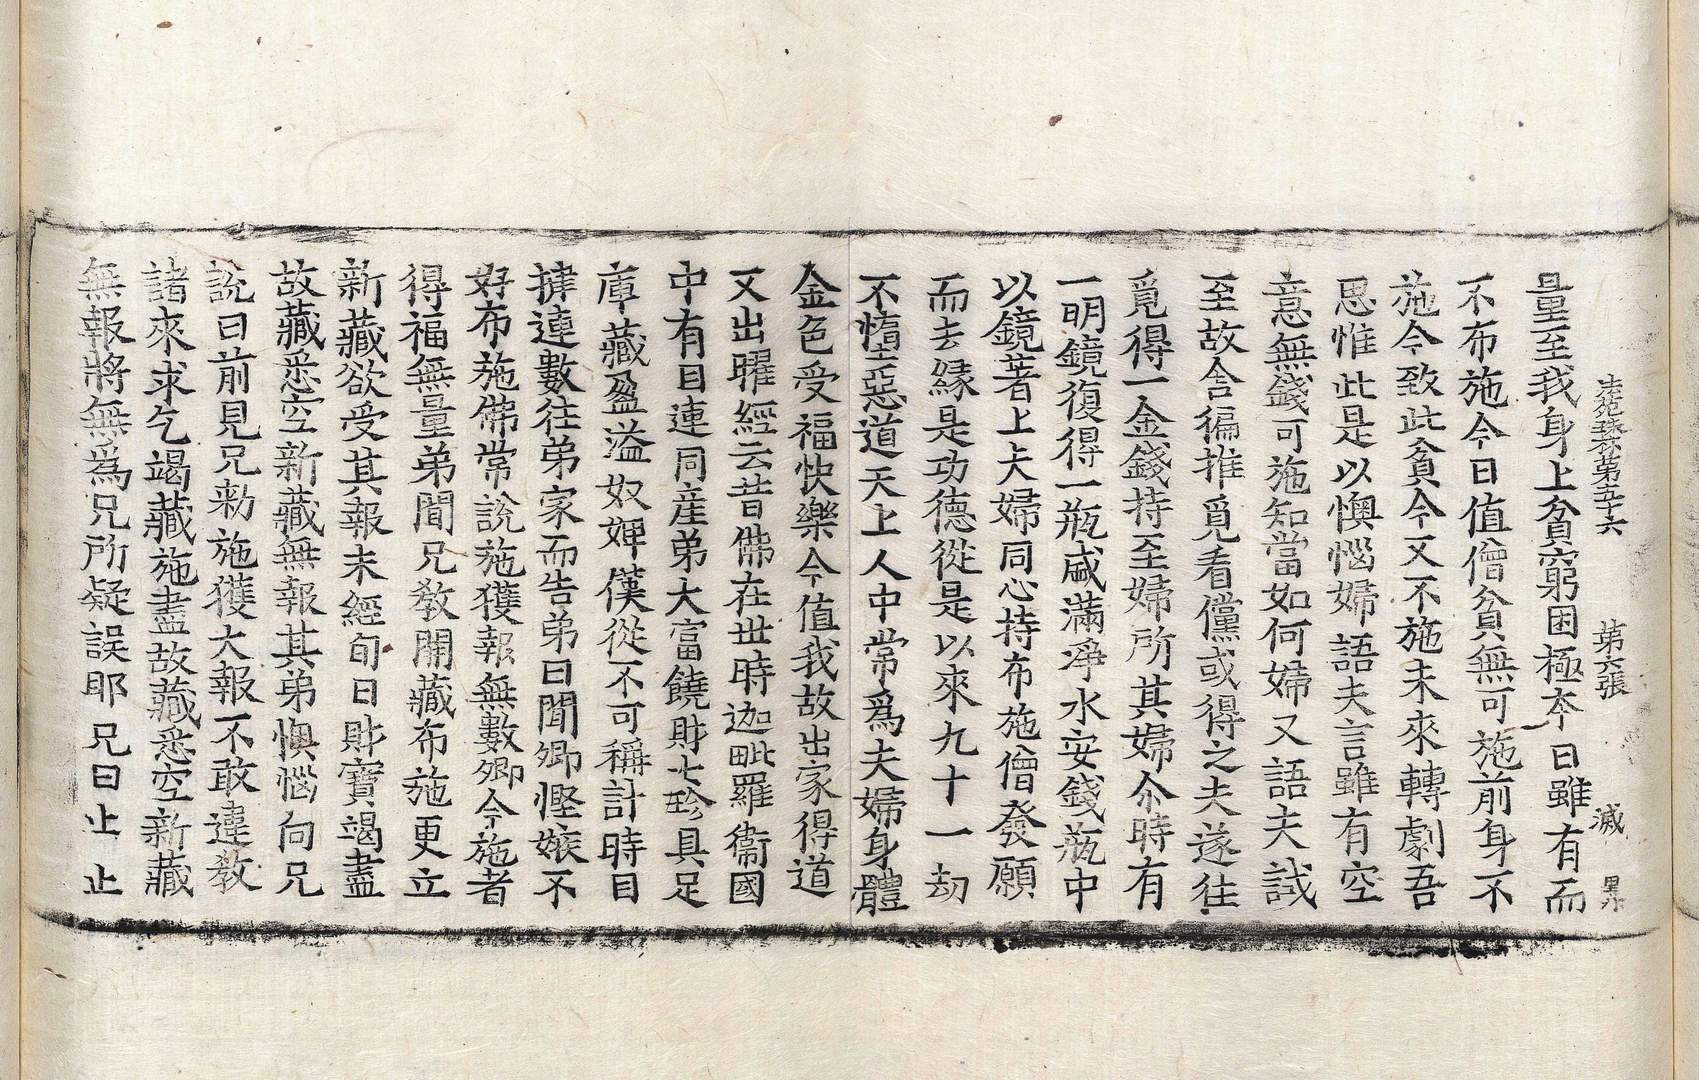 法苑珠林第五十六　第六張　滅
量至我身上貧窮困極夲日雖有而
不布施今日值僧貧無可施前身不
施今致此貧今又不施未來轉劇吾
思惟此是以懊惱婦語夫言雖有空
意無錢可施知當如何婦又語夫試
至故舍徧推覓看儻或得之夫遂往
覓得一金錢持至婦所其婦尒時有
一明鏡復得一瓶盛滿淨水安錢瓶中
以鏡著上夫婦同心持布施僧發願
而去緣是功德從是以來九十一劫
不憜惡道天上人中常爲夫婦身體
金色受福快樂今值我故出家得道
又出曜經云昔佛在世時迦毗羅衞國
中有目連同産弟大富饒財七珍具足
庫藏盈溢奴婢僕從不可稱計時目
揵連數往弟家而告弟曰聞卿慳嫉不
好布施佛常說施獲報無數卿今施者
得福無量弟聞兄教開藏布施更立
新藏欲受其報未經旬日財寶竭盡
故藏悉空新藏無報其弟懊惱向兄
說曰前見兄勑施獲大報不敢違教
諸來求乞竭藏施盡故藏悉空新藏
無報將無爲兄所疑誤耶兄曰止止